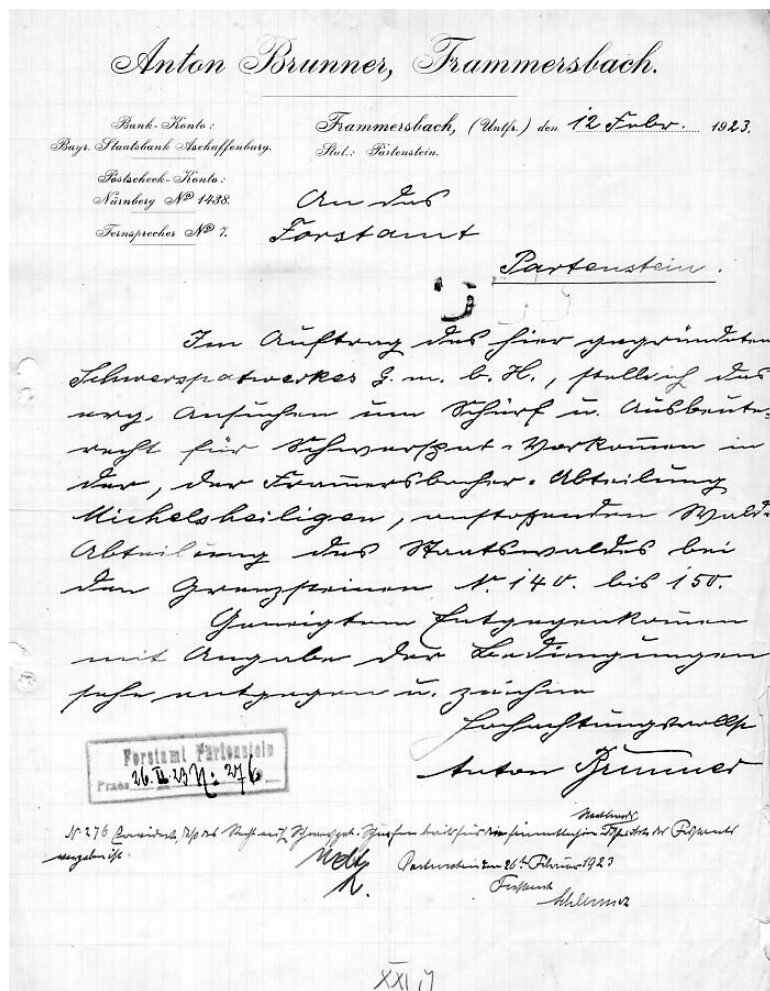 Anton Brunner, Frammersbach.
Bank-Konto:
Bayr. Staatsbank Aschaffenburg.
Postscheck-Konto:
Nürnberg No 1438.
Fernsprecher No 7.
Frammersbach, (Untfr.) den 12 Febr. 1923.
Stat.: Partenstein.
An das
Forstamt
Partenstein.
Im Auftrag des hier gegründeten
Schwerspatwerkes G. m. b. H., stelle ich das
erg. Ansuchen um Schürf u. Ausbeute-
recht für Schwerspat-Vorkom̄en in
der, der Fram̄ersbacher-Abteilung
Michelsheiligen, anstoßenden Wald-
Abteilung des Staatswaldes bei
den Grenzsteinen Nr. 140. bis 150.
Geneigtem Entgegenkom̄en
mit Angabe der Bedingungen
sehe entgegen u. zeichne
Hochachtungsvollst
Anton Brunner
Forstamt Partenstein
Praes. 26. II. 23 N: 276
N. 276 daß das Recht auf Schwerspat-Schürfen bereits für die sämmtlichen des Forstamts
vergeben ist.
Partenstein den 26ten Februar 1923
Forstamt
XXI